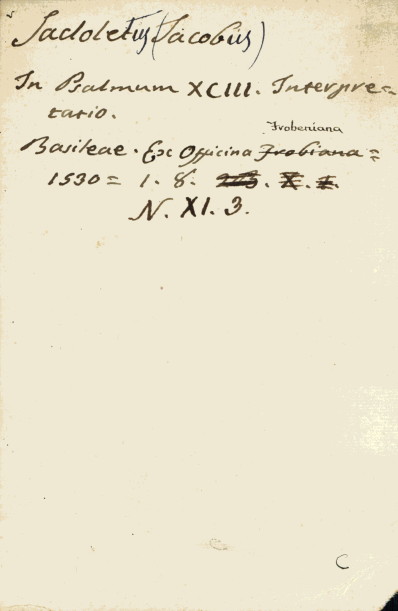 Sadoletus (Jacobus)
In Psalmum XCIII. Interpre=
tatio.
Frobeniana
Basileae. Ex Officina Frobiana=
1530= 1. 8. X. I.
N. XI. 3.
C